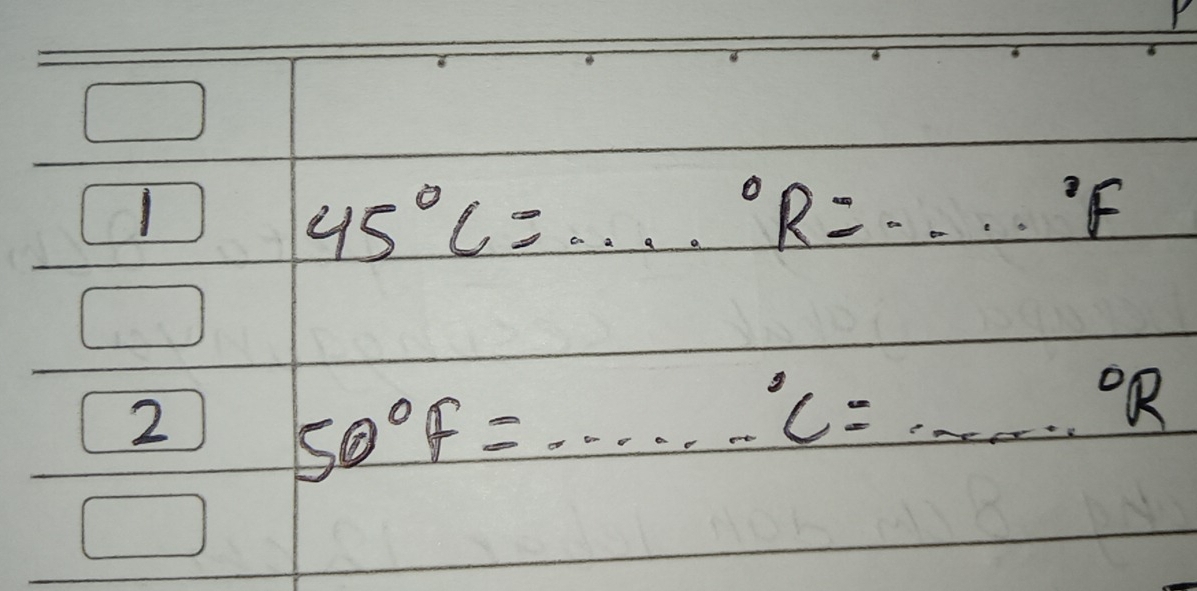 1 45°C = ..... °R = ..... °F
2 50°F = ....... °C = ....... °R